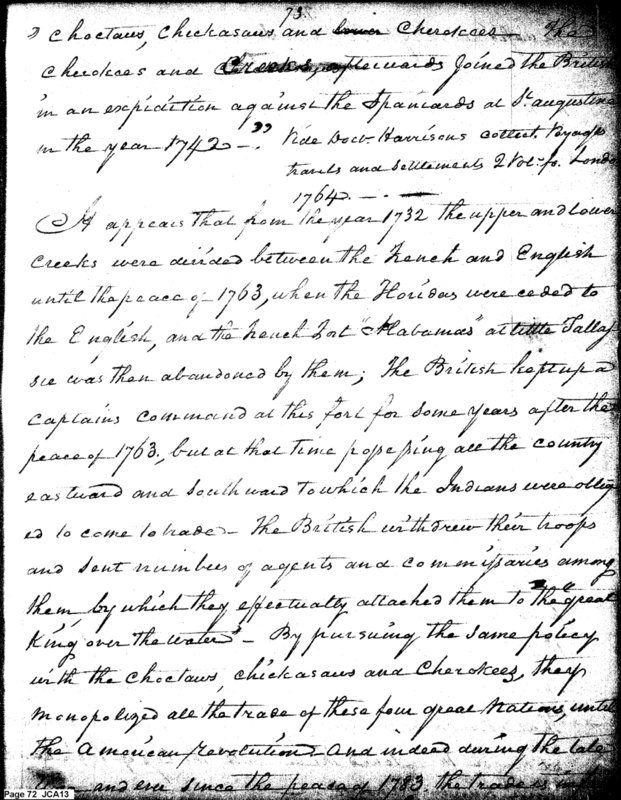 73.
" Choctaws, Chickasaws and lower Cherokees – The
Cherokees and Creeks, afterwards joined the British
in an expidition against the Spaniards at St. augustine
in the year 1742 –." Vide Doctr. Harrisons collect. Voyages
travels and Settlements 2 Vol. fo. London
1764. – . –
It appears that from the year 1732 the upper and Lower
Creeks were divided between the French and English
until the peace of 1763, when the Floridas were ceded to
the English, and the French Fort "Alabamas" at little Tallas
sie was then abandoned by them; The British kept up a
Captains command at this fort for some years after the
peace of 1763., but at that time possessing all the country
eastward and southward to which the Indians were oblig
ed to come to trade – The British withdrew their troops
and sent numbers of agents and commissaries among
them, by which they effectually attached them to "the great
King over the water" – By pursuing the same policy
with the Choctaws, Chickasaws and Cherokees, they
monopolized all the trade of these four great Nations, until
the American revolution – And indeed during the late
and ever since the peace of 1783. the trade is
Page 72 JCA13